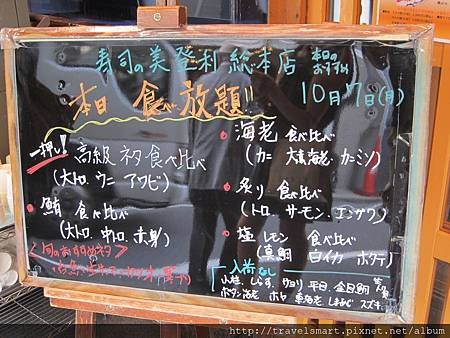 寿司の美登利 総本店
本日の
おすすめ
本日 食べ放題!!
10月7日(月)
一押し! 高級ネタ食べ比べ
(大トロ.ウニ アワビ)
鮪 食べ比べ
(大トロ.中トロ.赤身)
海老 食べ比べ
(カニ 大海老 カニミソ)
炙り 食べ比べ
(トロ.サーモン.エンガワ)
塩レモン 食べ比べ
(真鯛 白イカ ホタテ)
入荷なし
小柱. しらす. サヨリ 平目. 金目鯛
ボタン海老 ホヤ 車海老 しまあじ スズキ
http://travelsmart.pixnet.net/album